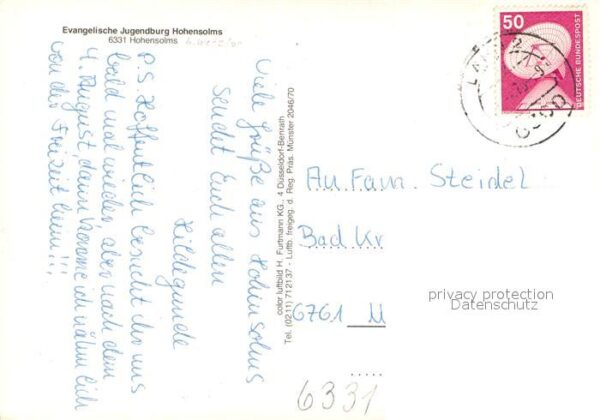 Evangelische Jugendburg Hohensolms
6331 Hohensolms
Viele Grüße aus Hohensolms
sendet Euch allen
Hildegunde
P.S. Hoffentlich besucht ihr uns
bald mal wieder, aber nach dem
4. August, dann komme ich nämlich
von der Freizeit heim!!!
color luftbild H. Furtmann KG., 4 Düsseldorf-Benrath
Tel. (0211) 712137 - Luftb. freigeg. d. Reg. Präs. Münster 2046/70
50
DEUTSCHE BUNDESPOST
An Fam. Steidel
Bad Kr
6761 M
privacy protection
Datenschutz
6331